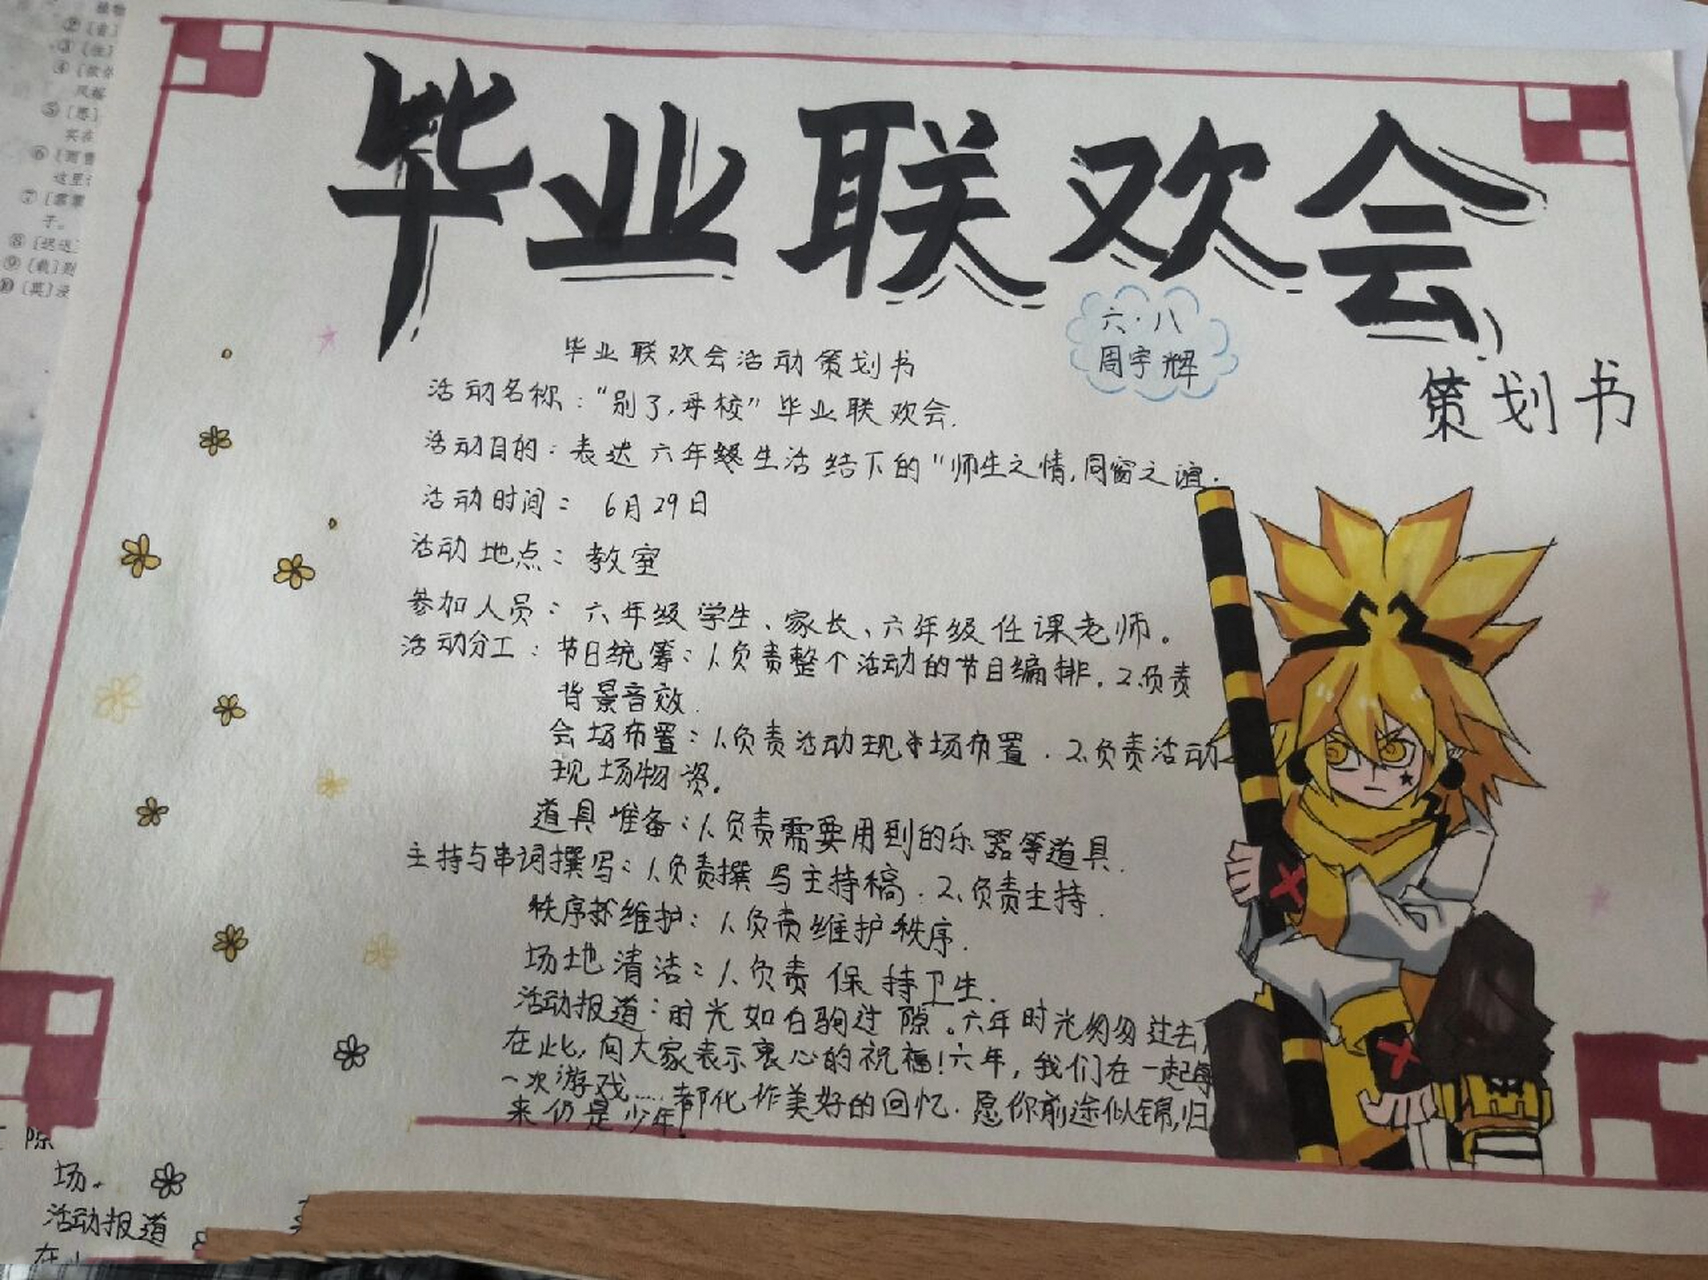 植物
②[
③[
④[
风
⑤[
实在
⑥[
这里
⑦[
子。
⑧[
⑨[载]则
⑩[莫]没
毕业联欢会
六·八
周宇辉
策划书
毕业联欢会活动策划书
活动名称：“别了,母校”毕业联欢会.
活动目的：表达六年终生活结下的“师生之情,同窗之谊.
活动时间： 6月29日
活动地点：教室
参加人员：六年级学生、家长、六年级任课老师。
活动分工：节日统筹：1.负责整个活动的节目编排.2.负责
背景音效.
会场布置：1.负责活动现场布置.2.负责活动
现场物资。
道具准备：1.负责需要用到的乐器等道具.
主持与串词撰写：1.负责撰写主持稿.2.负责主持.
秩序维护：1.负责维护秩序.
场地清洁：1.负责保持卫生.
活动报道：时光如白驹过隙。六年时光匆匆过去,
在此,向大家表示衷心的祝福!六年,我们在一起每
一次游戏……都化作美好的回忆.愿你前途似锦,归
来仍是少年!
隙
场.
活动报道
在